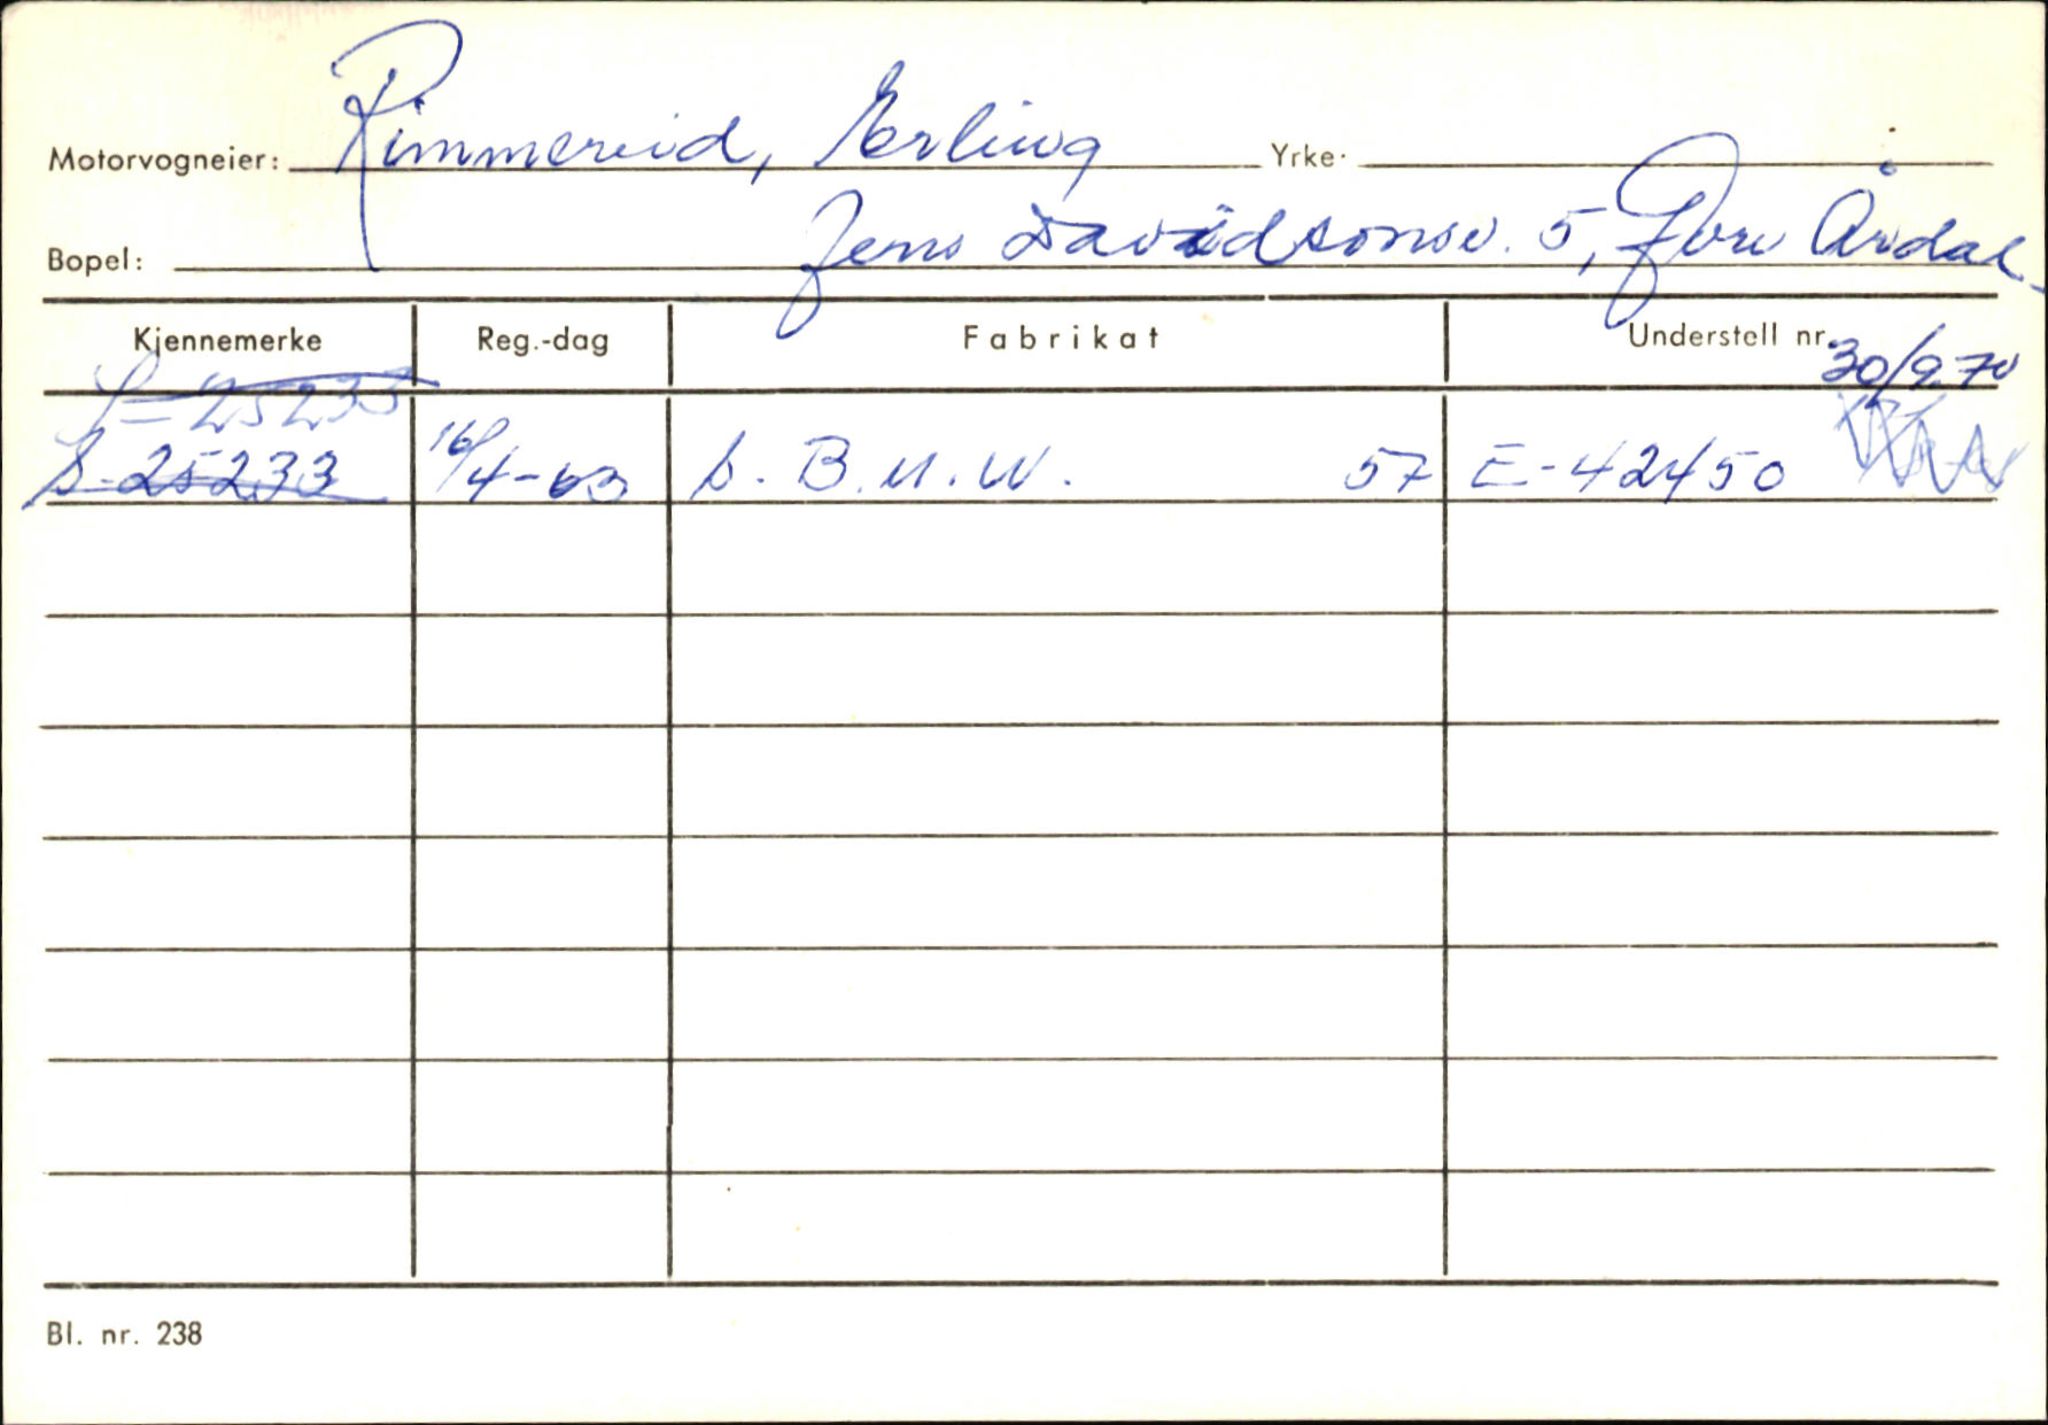 Motorvogneier: Rimmereid, Erling Yrke:
Bopel: Jens Davidsonsv. 5, Øvre Årdal
Kjennemerke Reg.-dag Fabrikat Understell nr.
30/9.70
S-25233
S-25233 16/4-63 b. B.M.W. 57 E-42450
Bl. nr. 238